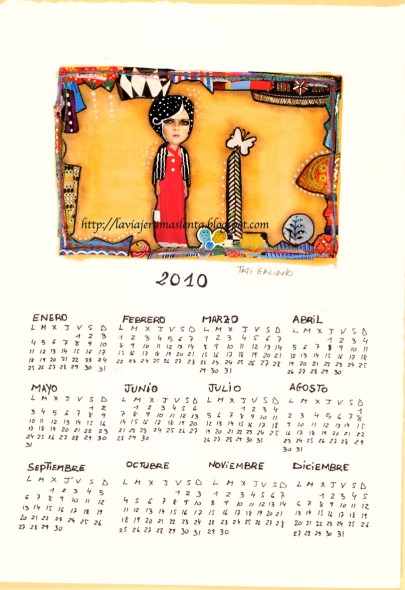 http://laviajeramaslenta.blogspot.com
TATI GALIANO
2010
ENERO
L M X J V S D
1 2 3
4 5 6 7 8 9 10
11 12 13 14 15 16 17
18 19 20 21 22 23 24
25 26 27 28 29 30 31
FEBRERO
L M X J V S D
1 2 3 4 5 6 7
8 9 10 11 12 13 14
15 16 17 18 19 20 21
22 23 24 25 26 27 28
MARZO
L M X J V S D
1 2 3 4 5 6 7
8 9 10 11 12 13 14
15 16 17 18 19 20 21
22 23 24 25 26 27 28
29 30 31
ABRIL
L M X J V S D
1 2 3 4
5 6 7 8 9 10 11
12 13 14 15 16 17 18
19 20 21 22 23 24 25
26 27 28 29 30
MAYO
L M X J V S D
1 2
3 4 5 6 7 8 9
10 11 12 13 14 15 16
17 18 19 20 21 22 23
24 25 26 27 28 29 30
31
JUNIO
L M X J V S D
1 2 3 4 5 6
7 8 9 10 11 12 13
14 15 16 17 18 19 20
21 22 23 24 25 26 27
28 29 30
JULIO
L M X J V S D
1 2 3 4
5 6 7 8 9 10 11
12 13 14 15 16 17 18
19 20 21 22 23 24 25
26 27 28 29 30 31
AGOSTO
L M X J V S D
1
2 3 4 5 6 7 8
9 10 11 12 13 14 15
16 17 18 19 20 21 22
23 24 25 26 27 28 29
30 31
SEPTIEMBRE
L M X J V S D
1 2 3 4 5
6 7 8 9 10 11 12
13 14 15 16 17 18 19
20 21 22 23 24 25 26
27 28 29 30
OCTUBRE
L M X J V S D
1 2 3
4 5 6 7 8 9 10
11 12 13 14 15 16 17
18 19 20 21 22 23 24
25 26 27 28 29 30 31
NOVIEMBRE
L M X J V S D
1 2 3 4 5 6 7
8 9 10 11 12 13 14
15 16 17 18 19 20 21
22 23 24 25 26 27 28
29 30
DICIEMBRE
L M X J V S D
1 2 3 4 5
6 7 8 9 10 11 12
13 14 15 16 17 18 19
20 21 22 23 24 25 26
27 28 29 30 31